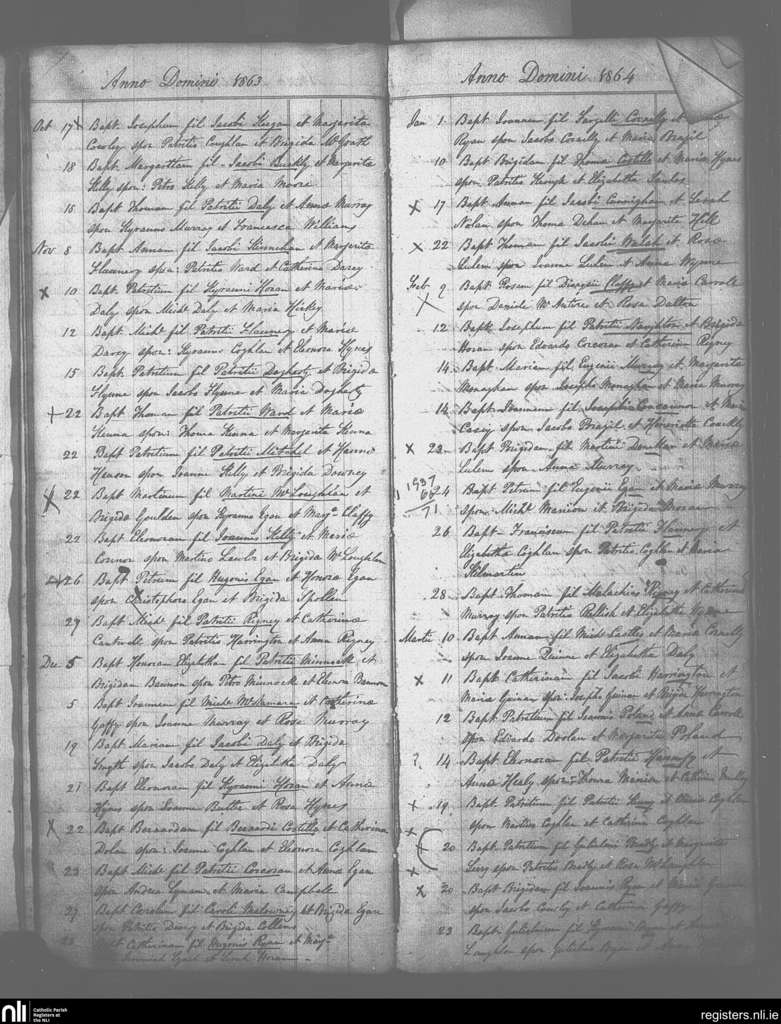 Anno Domini 1863
Oct 17 x Bapt. Josephum fil Jacobi Hogan et Margarita
Cowley spon Patritio Coughlan et Brigida McGrath
18 Bapt. Margarittam fil - Jacobi Buckly et Margarita
Kelly spon: Petro Kelly et Maria Moore
18 Bapt Thomam fil Patritii Daly et Anna Murray
spon Kyranus Murray et Francesca Williams
Nov 8 Bapt Annam fil Jacobi et Margarita
Flannery spon: Patritio Ward et Catherina Darcy
x 10 Bapt Patritium fil Kyranni Horan et Maria
Daly spon Michl Daly et Maria Hickey
12 Bapt Michl fil Patritii Flannery et Maria
Darcy spon: Kyranno Coghlan et Eleonora Hynes
15 Bapt. Patritium fil Patritii Dogherty et Brigida
Flynne spon Jacobo Flynne et Maria Dogherty
+ 22 Bapt Thomam fil Patritii Ward et Maria
Kenna spon: Thoma Kenna et Margarita Kenna
22 Bapt Patritium fil Patritii Mitchel et Hanna
spon Joanne Kelly et Brigida Downey
x 22 Bapt Martinum fil Martini McLoughlan et
Brigida Goulden spon Kyranno Egan et Margta Claffy
22 Bapt Eleonoram fil Joannis Kelly et Maria
Connor spon Martino Lawlor et Brigida McLoughlin
x 26 Bapt Petrum fil Hugonis Egan et Honora Egan
spon Christophoro Egan et Brigida Spollen
29 Bapt Michl fil Patritii Rigney et Catherina
Cantwell spon Patritio Harrington et Anna Rigney
Dec 5 Bapt Honoram Elizabetham fil Patritii Minnock et
Brigidan Bannon spon Petro Minnock et Elenora Bannon
5 Bapt Joannem fil Michl McNamara et Catherina
Gaffy spon Joanne Murray et Rosa Murray
19 Bapt Mariam fil Jacobi Daly et Brigida
Smyth spon Jacobo Daly et Elizabetha Daly
21 Bapt Eleonoram fil Kyranni Horan et Anna
Hynes spon Joanne Butler et Rosa Hynes
x 22 Bapt Bernardam fil Bernardi Costello et Catherina
Dolan spon: Joanne Coghlan et Eleonora Coghlan
23 Bapt Michl fil Patritii Corcoran et Anna Egan
spon Andrea et Maria Campbell
27 Bapt Carolum fil Caroli Molowney et Brigida Egan
spon Patritio Deacy et Brigida Collins
Bapt Catherinam fil Hugonis Ryan et Margta
Egan et Sarah Horan
Anno Domini 1864
Jan 1 Bapt Joannem fil Connelly et
Ryan spon Jacobo Connelly et Maria Brazil
10 Bapt Brigidam fil Thoma Costello et Maria Hynes
spon Patritio Keough et Elizabetha Lawlor
x 17 Bapt Annam fil Jacobi Cunnigham et Sarah
Nolan spon Thoma Dolan et Margarita Hill
x 22 Bapt Thomam fil Jacobi Walsh et Rosa
spon Joanne et Anna Wynne
Feb 9 Bapt Rosam fil Claffy et Maria Carroll
x spon Daniele McAntire et Rosa Dalton
12 Bapt Josephum fil Patritii Naughton et Brigida
Horan spon Edwardo Corcoran et Catherina Rigney
14 Bapt Mariam fil Eugenii Murray et Margarita
Monaghan spon Josepho Monaghan et Maria Murray
14 Bapt Joannem fil Josephi Corcoran et Maria
Casey spon Jacobo Brazil et Henrietta Coakly
x 22 Bapt Brigidam fil Martini et Maria
spon Anna Murray
1937
66
71
24 Bapt Petrum fil Eugenii Egan et Maria Murray
spon Michl Mannion et Brigida Moran
26 Bapt Franciscum fil Patritii et
Elizabetha Coghlan spon Patritio Coghlan et Maria
Kilmartin
28 Bapt Thomam fil Malachias Rigney et Catherina
Murray spon Patritio et Elizabetha
Martii 10 Bapt Annam fil Michl Lastles et Maria Connelly
spon Joanne Quinne et Elizabetha Daly
x 11 Bapt Catherinam fil Jacobi Harrington et
Maria Guinan spon: Joseph Guinan et Brigida Harrington
12 Bapt Patritium fil Joannis Poland et Anna Carroll
spon Edwardo Doolan et Margarita Poland
? 14 Bapt Elenoram fil Patritii et
Anna Healy spon: Thoma et Catherina
+ 19 Bapt Patritium fil Patritii et Maria Coghlan
spon Martino Coghlan et Catherina Coghlan
+ 20 Bapt Patritium fil Gulielmi et Margarita
spon Patritio et Rosa McLaughlin
x 20 Bapt Brigidam fil Joannis Ryan et Maria
spon Jacobo Cowley et Catherina Gaffy
23 Bapt Gulielmum fil Kyranni et
Loughlen spon Gulielmo et
nli
Catholic Parish
Registers at
the NLI
registers.nli.ie